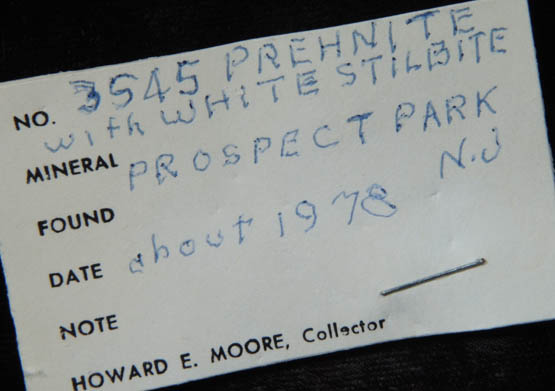 NO. 3545 PREHNITE
with WHITE STILBITE
MINERAL
PROSPECT PARK
FOUND N.J
DATE about 1978
NOTE
HOWARD E. MOORE, Collector